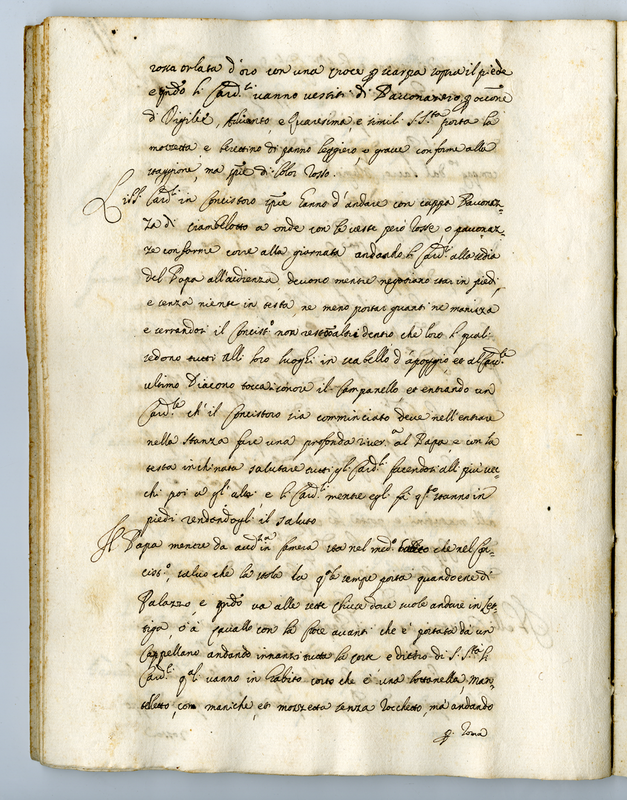 rossa orlata d'oro con una croce p scarpa sopra il piede
e qndo li Card.li vanno vestiti di Pavonazzo p occne
di Vigilie, Advento, e Quaresima, e simili S. S.ta porta la
mozzetta e beretino di panno leggiero, o grave conforme alla
staggione, ma spre di color rosso.
Li SS. Card.li in Concistoro spre hanno d'andare con cappa Pavonaz=
za di ciambellotto a onde con la veste però rossa o pavonaz=
za conforme corre alla giornata andando li Card.li alla sedia
del Papa all'audienza devono mentre negotiano star in piedi,
e senza niente in testa, ne meno portar guanti ne manizza
e serrandosi il Concist.o non restano altri dentro che loro li quali
sedono tutti alli loro luoghi in scabello d'apoggio, et al Card.le
ultimo Diacono tocca sonare il campanello et entrando un
Card.le ch' il Concistoro sia comminciato deve nell'entrare
nella stanza fare una profonda river.a al Papa, e con la
testa inchinata salutare tutti gli Card.li facendosi alli più vec=
chi poi a gl'altri, e li Card.li mentre egli fa q.sto stanno in
piedi rendendogli il saluto
Il Papa mentre da aud.za in camera sta nel med.o habito che nel Con=
cist.o salvo che la stola la q.le sempre porta quando esce di
Palazzo, e qndo va alle sette chiese dove suole andare in let=
tiga, ò à cavallo con la croce avanti che è portata da un
Cappellano andando innanzi tutta la corte e dietro di S. S.ta li
Card.li q.ali vanno in habito corto che è una sottanella, man=
telletto, con maniche, et mozzetta senza rocchetto, ma andando
p Roma